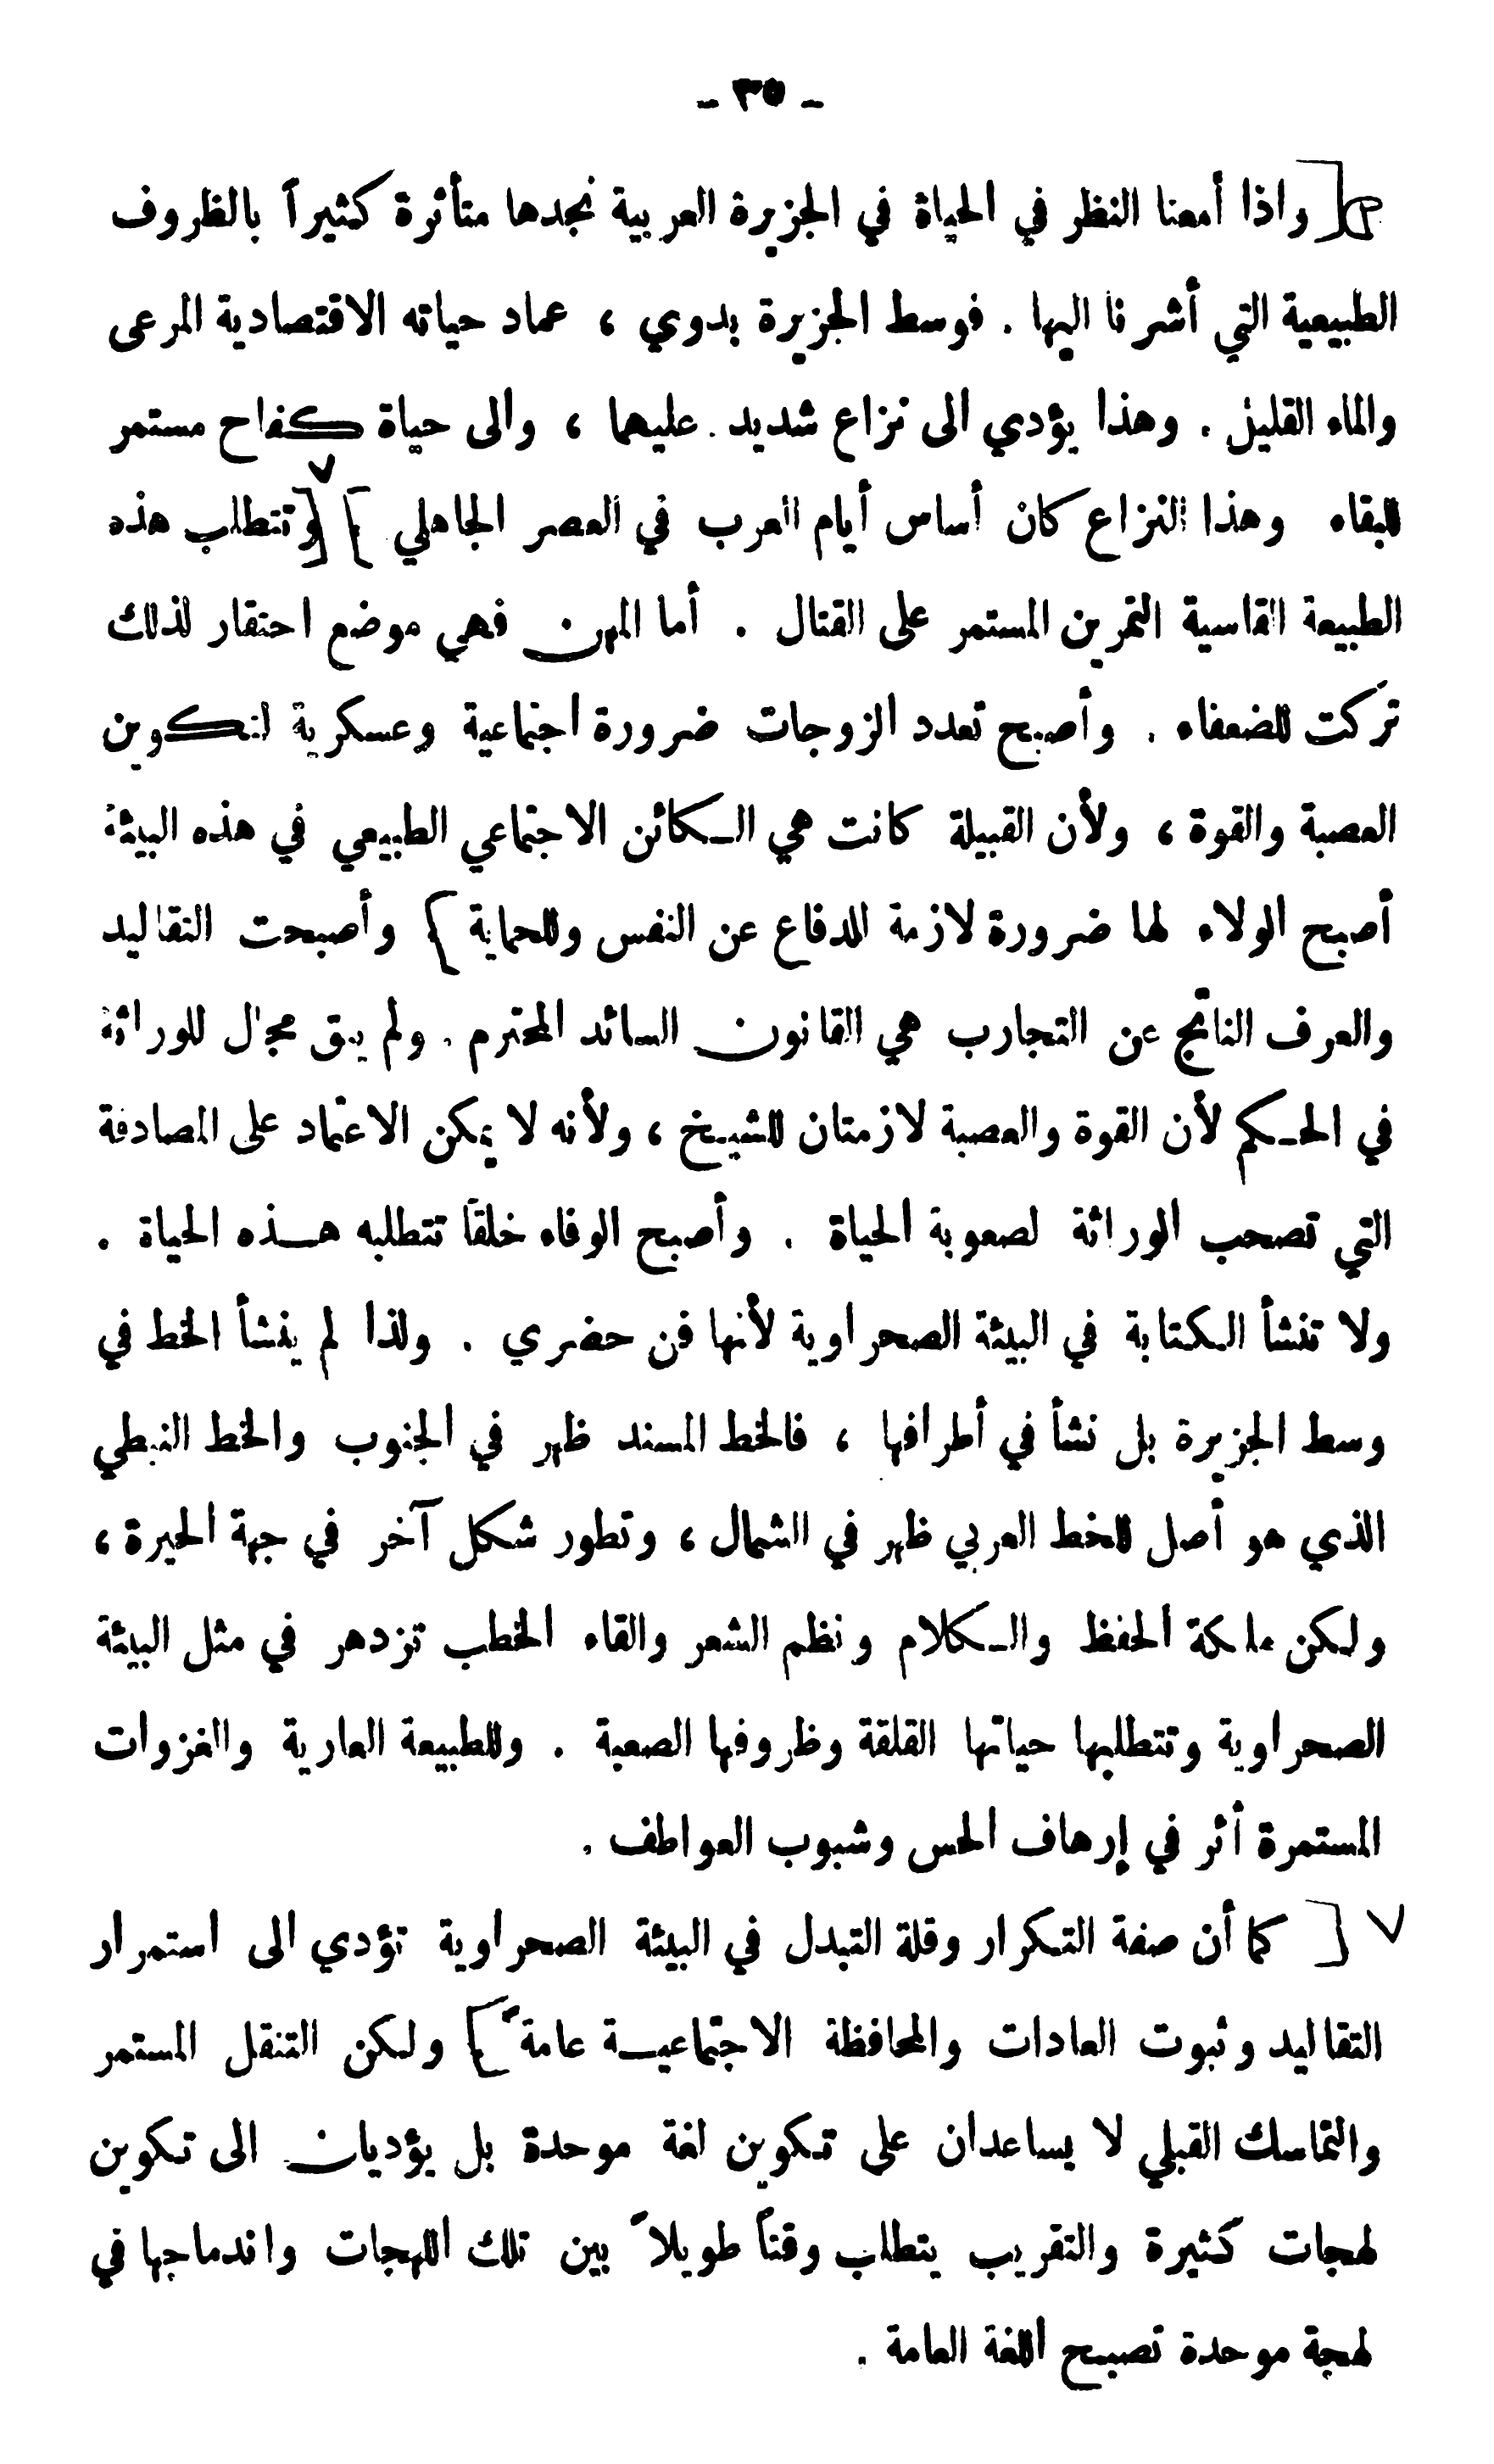 - ٣٥ -
واذا أمعنا النظر في الحياة في الجزيرة العربية نجدها متأثرة كثيراً بالظروف
الطبيعية التي أشرنا اليها . فوسط الجزيرة بدوي ، عماد حياته الاقتصادية المرعى
والماء القليل . وهذا يؤدي الى نزاع شديد عليهما ، والى حياة كفاح مستمر
للبقاء وهذا النزاع كان أساس أيام العرب في العصر الجاهلي ] [ وتتطلب هذه
الطبيعة القاسية التمرين المستمر على القتال . أما المهن فهي موضع احتقار لذلك
تركت للضعفاء . وأصبح تعدد الزوجات ضرورة اجتماعية وعسكرية لتكوين
العصبة والقوة ، ولأن القبيلة كانت هي الكائن الاجتماعي الطبيعي في هذه البيئة
أصبح الولاء لها ضرورة لازمة للدفاع عن النفس وللحماية ] وأصبحت التقاليد
والعرف الناتج عن التجارب هي القانون السائد المحترم . ولم يبق مجال للوراثة
في الحكم لأن القوة والعصبة لازمتان للشيخ ، ولأنه لا يمكن الاعتماد على المصادفة
التي تصحب الوراثة لصعوبة الحياة . وأصبح الوفاء خلقاً تتطلبه هذه الحياة .
ولا تنشأ الكتابة في البيئة الصحراوية لأنها فن حضري . ولذا لم ينشأ الخط في
وسط الجزيرة بل نشأ في أطرافها ، فالخط المسند ظهر في الجنوب والخط النبطي
الذي هو أصل للخط العربي ظهر في الشمال ، وتطور شكل آخر في جهة الحيرة ،
ولكن ملكة الحفظ والكلام ونظم الشعر والقاء الخطب تزدهر في مثل البيئة
الصحراوية وتتطلبها حياتها القلقة وظروفها الصعبة . وللطبيعة العارية والغزوات
المستمرة أثر في إرهاف الحس وشبوب العواطف .
[ كما أن صفة التكرار وقلة التبدل في البيئة الصحراوية تؤدي الى استمرار
التقاليد وثبوت العادات والمحافظة الاجتماعية عامة ] ولكن التنقل المستمر
والتماسك القبلي لا يساعدان على تكوين لغة موحدة بل يؤديان الى تكوين
لهجات كثيرة والتقريب يتطلب وقتاً طويلاً بين تلك اللهجات واندماجها في
لهجة موحدة تصبح اللغة العامة .